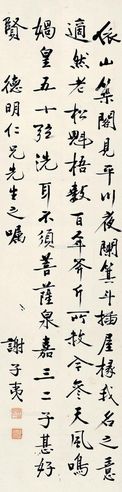 依山築閣見平川夜闌箕斗插屋椽我名之意
適然老松魁梧數百年斧斤所赦今參天風鳴
媧皇五十弦洗耳不須菩薩泉嘉三二子甚好
賢 德明仁兄先生之囑 謝子夷